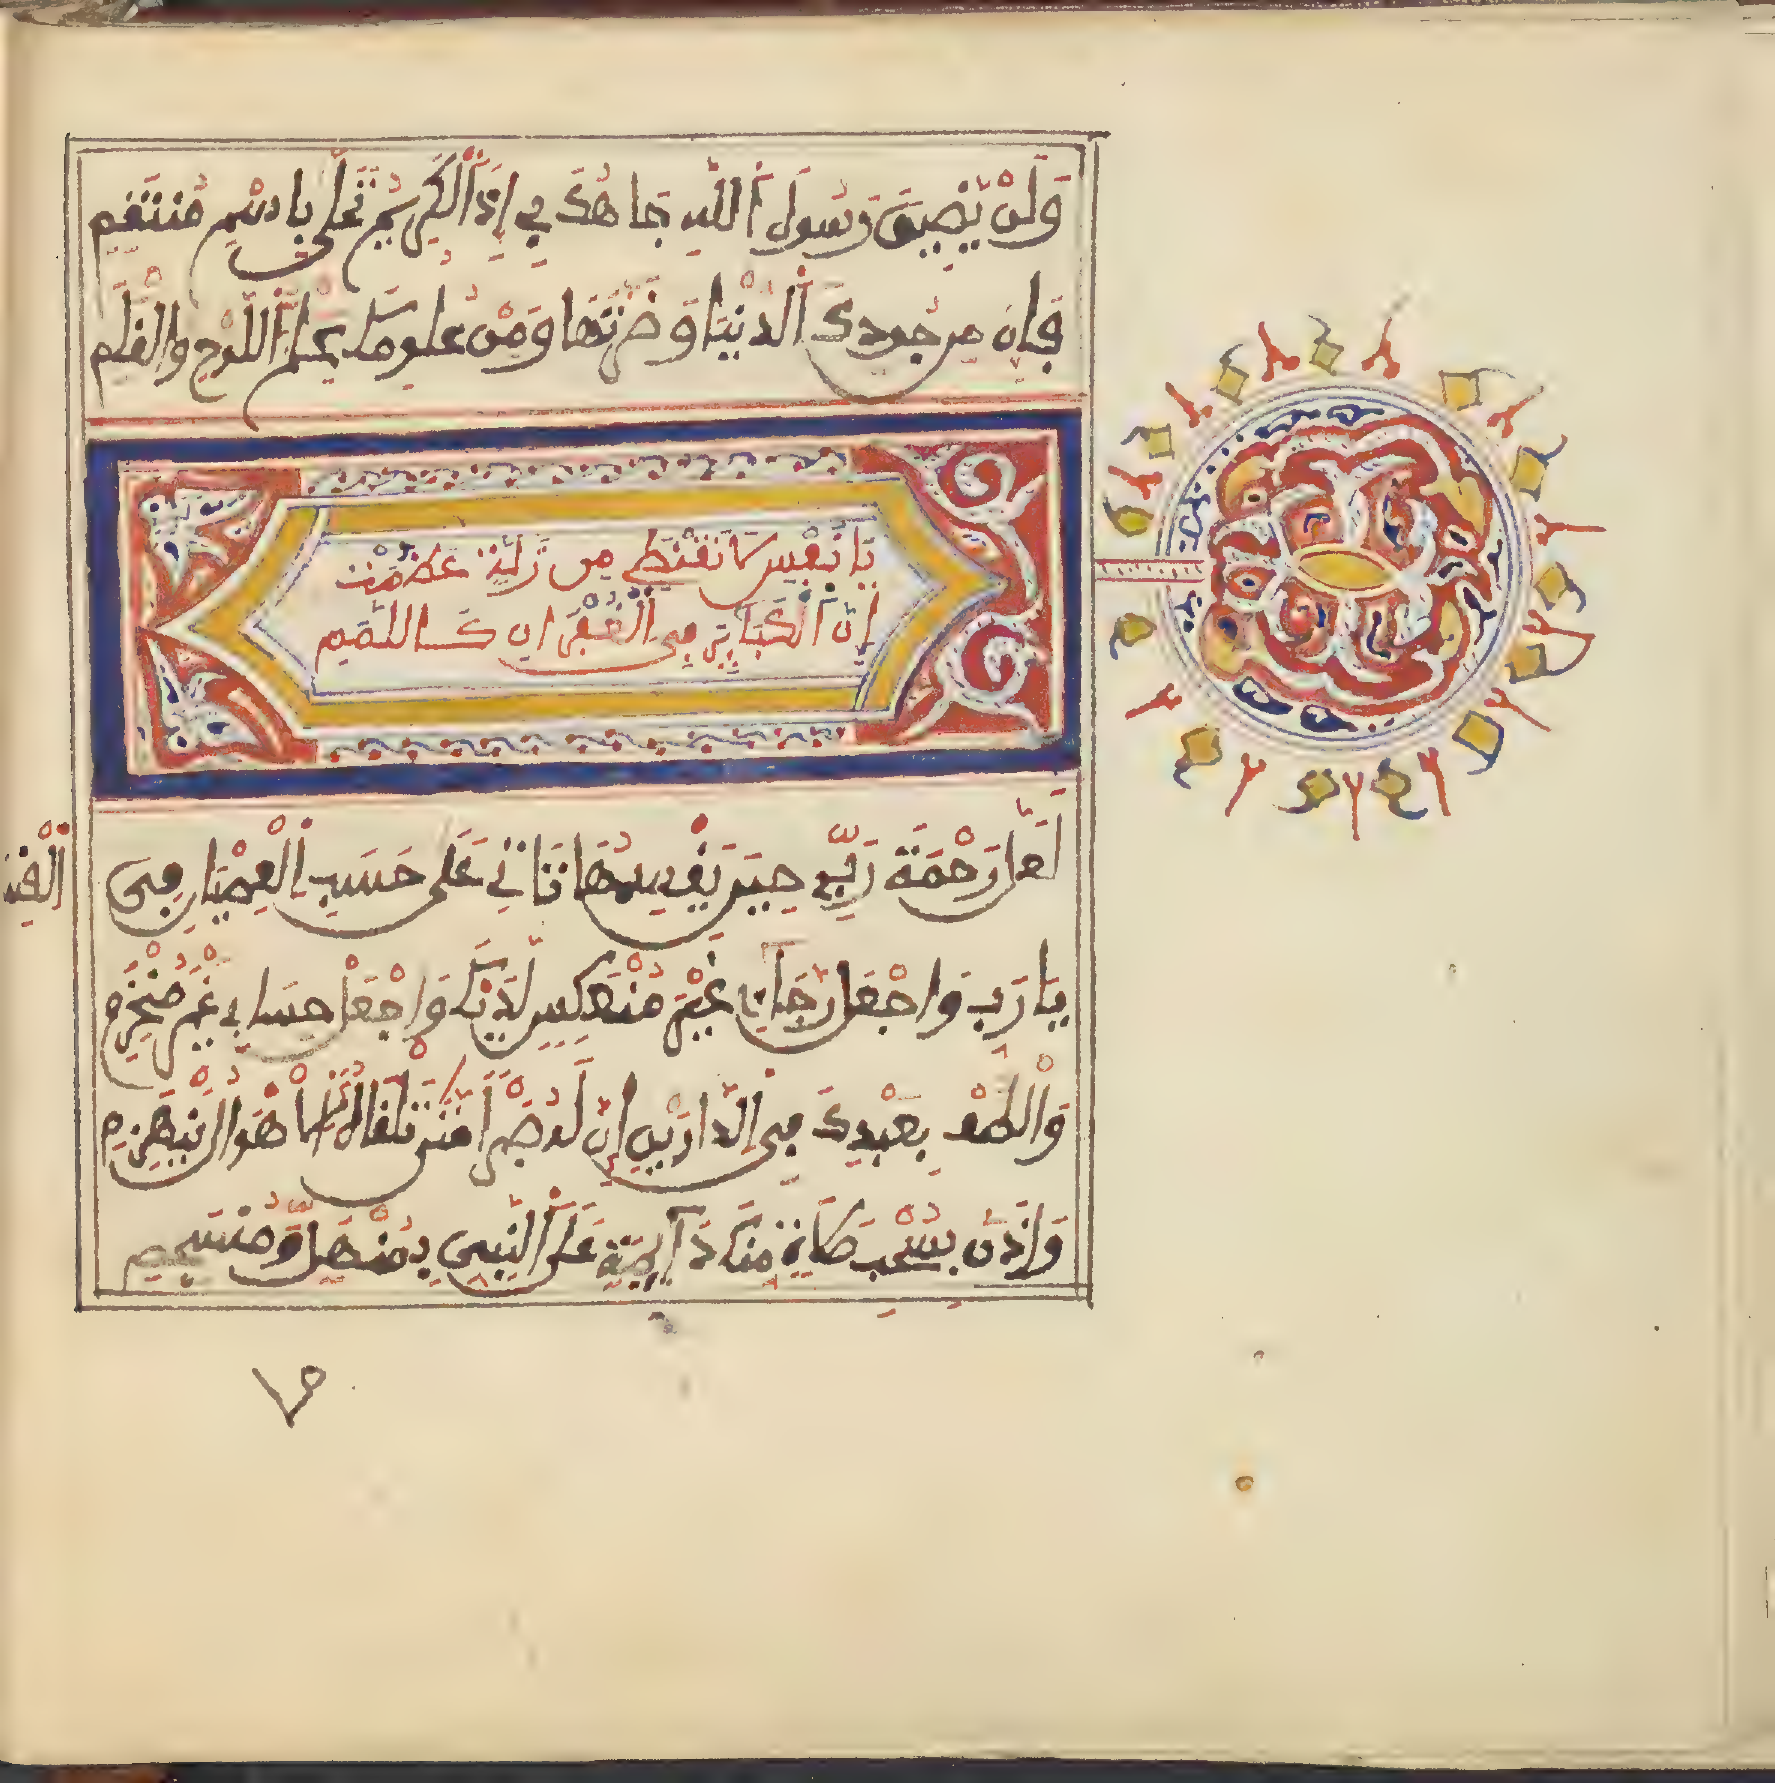 وَلَنْ يَّضِيقَ رَسُولَ اَللَّهِ جَاهُكَ بِي إِذَا اَلْكَرِيمُ تَحَلَّى بِاسْمِ مُنتَقِمِ
فَإِنَّ مِن جُودِكَ اَلدُّنْيَا وَضَرَّتَهَا وَمِنْ عُلُومِكَ عِلْمَ اَللَّوْحِ وَالْقَلَمِ
يَا نَفْسُ لَا تَقْنَطِي مِن زَلَّةٍ عَظُمَتْ
إِنَّ اَلْكَبَائِرَ فِي اَلْغُفْرَانِ كَاللَّمَمِ
لَعَلَّ رَحْمَةَ رَبِّي حِينَ يَقْسِمُهَا تَاتِي عَلَى حَسَبِ اِلْعِصْيَانِ فِي
اِلْقِسَمِ
يَا رَبِّ وَاجْعَل رَّجَائِي غَيْرَ مُنْعَكِسٍ لَدَيْكَ وَاجْعَلْ حِسَابِي غَيْرَ مُنْخَرِمِ
وَالْطُفْ بِعَبْدِكَ فِي اِلدَّارَيْنِ إِنَّ لَهُ صَبْراً مَتَى تَلْقَهُ اُلْأَهْوَالُ يَنْهَزِمِ
وَاذَن بِسُحْبِ صَلَاةٍ مِنكَ دَائِمَةٍ عَلَى اَلنَّبِي بِمُنْهَلٍّ وَمُنسَجِمِ